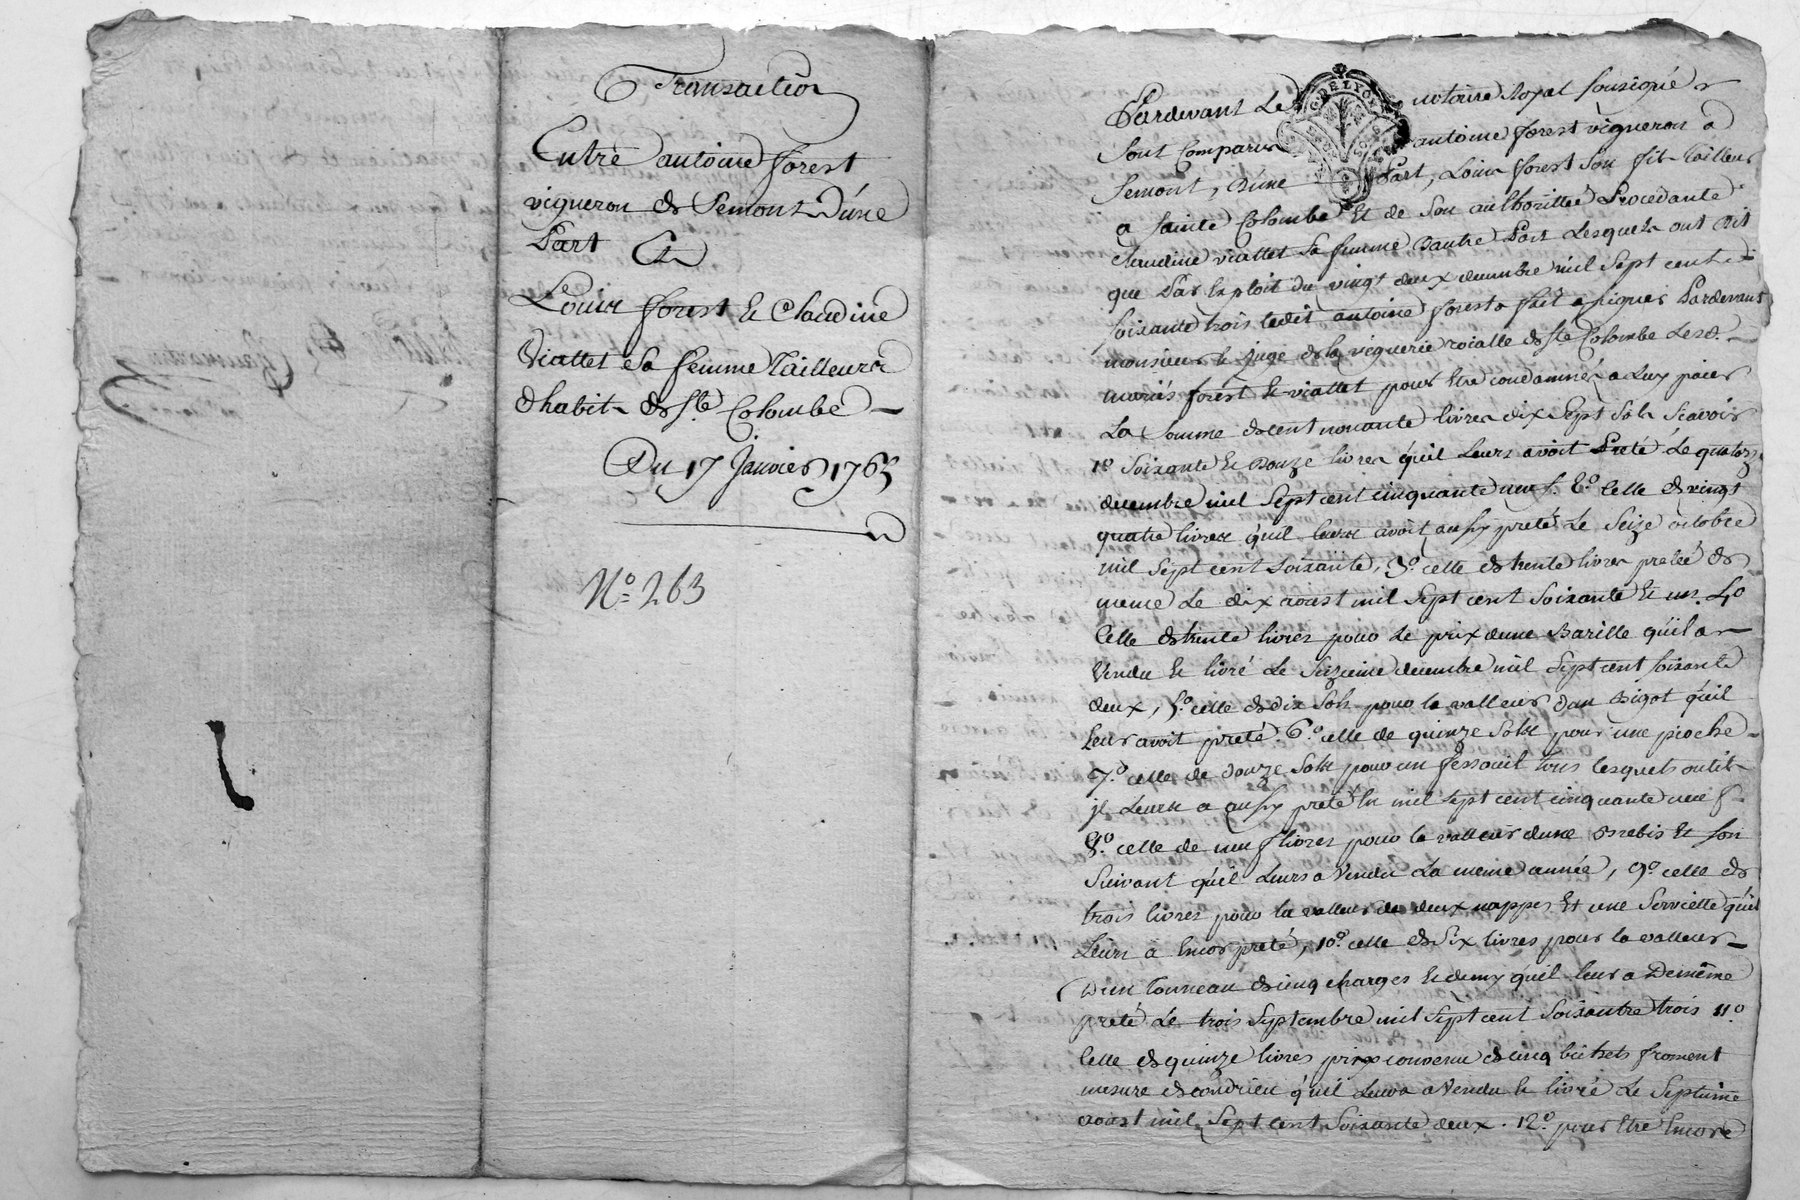 Transaction
Entre antoine forest
vigneron de Semons d'une
Part Et
Louis forest et Claudine
Viallet sa femme Tailleurs
dhabits de Ste Colombe
Du 17 Janvier 1763
N.o 263
Pardevant Le notaire Royal soussigné
Sont Comparus antoine forest vigneron a
Semont, d'une Part, Louis forest son fils tailleur
a Sainte Colombe et de son authorittée Procedante
Claudine viallet sa femme Dautre Part Lesquels ont Dit
que Par Exploit du vingt deux decembre mil Sept cent
soixante trois ledit antoine forest a fait assigner Pardevant
monsieur le juge de la viguerie roialle de Ste Colombe Lesd.
mariés forest et viallet pour être condamnés a Luy paier
La somme de cent nonante livres dix Sept sols Scavoir
1o Soixante et Douze livres qu'il Leurs avoit Preté Le quatorze
decembre mil Sept cent cinquante neuf. 2o Celle de vingt
quatre livres qu'il leurs avoit aussy preté Le Seize octobre
mil Sept cent soixante, 3o celle de trente livres pretée de
meme Le dix aoust mil Sept cent Soixante et un. 4o
Celle de trente livres pour Le prix d'une Barille qu'il a
Vendu et livré Le Seizieme decembre mil Sept cent soixante
deux, 5o celle de dix sols pour la valleur d'un Bigot qu'il
Leur avoit preté. 6o celle de quinze sols pour une pioche
7o celle de douze sols pour un fessouil tous lesquels outils
il Leurs a aussy preté En mil Sept cent cinquante neuf
8o celle de neuf livres pour la valleur d'une Brebis et son
Suivant qu'il Leurs a Vendu La meme année, 9o celle de
trois livres pour la valleur de deux nappes Et une Serviette qu'il
Leurs a Encor preté, 10o celle de Six livres pour la valleur
D'un tonneau de cinq charges et demy qu'il leur a De même
preté Le trois Septembre mil Sept cent Soixante trois 11o
Celle de quinze livres prix convenu de cinq bichets froment
mesure de Condrieu qu'il Leurs a Vendu et livré Le Septième
aoust mil Sept cent Soixante deux. 12o pour être Encore